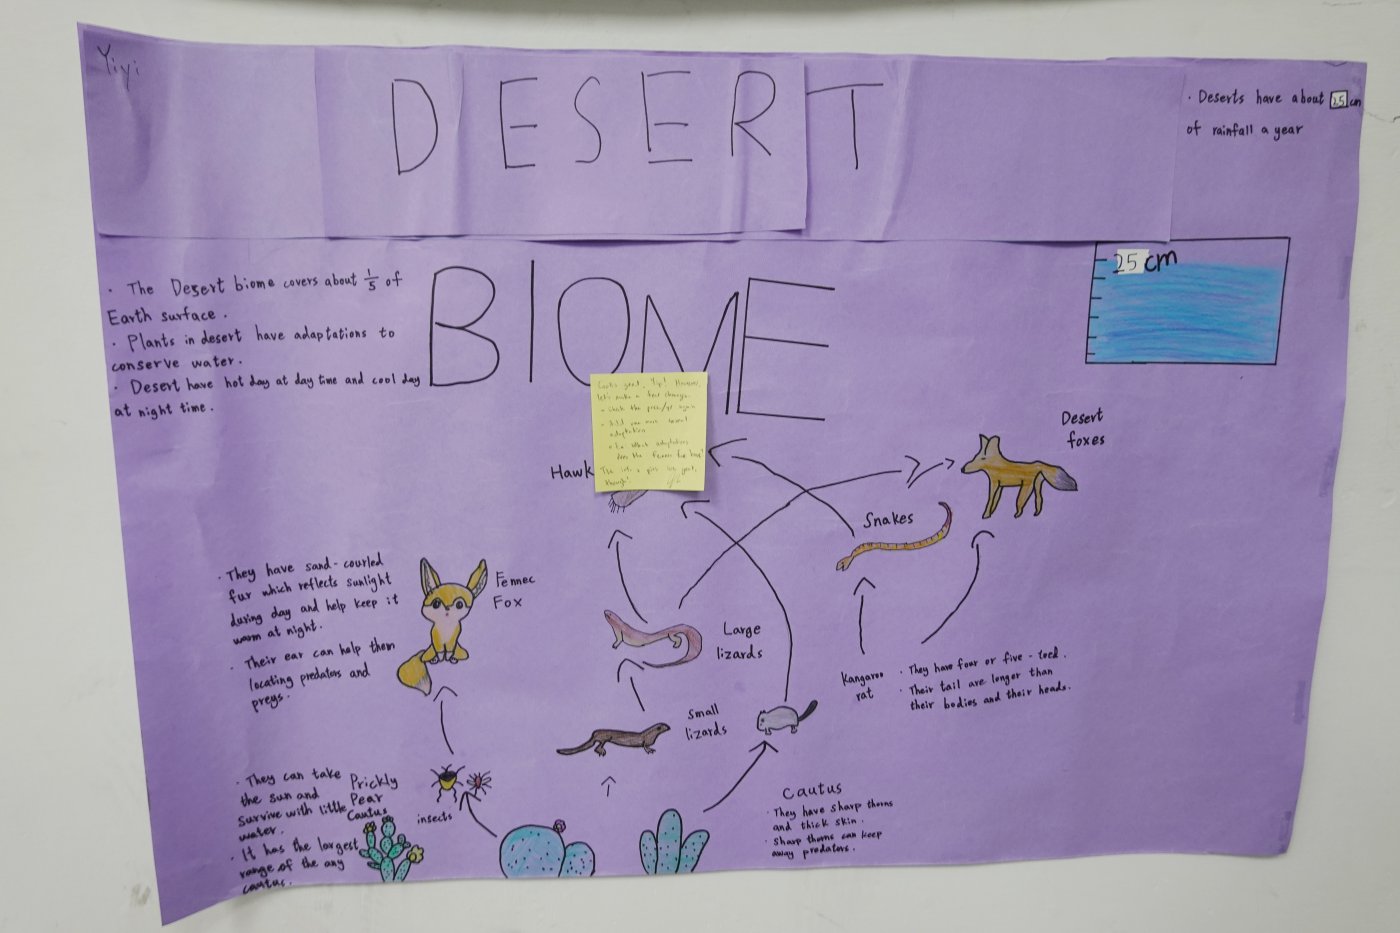 Yiyi
DESERT
BIOME
· Deserts have about 25 cm
of rainfall a year
25 cm
· The Desert biome covers about 1/5 of
Earth surface.
· Plants in desert have adaptations to
conserve water.
· Desert have hot day at day time and cool day
at night time.
Looks great, Yiyi! However,
let's make a few changes
again
- Add one more
adaptation
adaptations
does the fennec fox have?
though!
Hawk
Desert
foxes
Snakes
· They have sand-courled
fur which reflects sunlight
during day and help keep it
warm at night.
· Their ear can help them
locating predators and
preys.
Fennec
Fox
Large
lizards
Kangaroo
rat
· They have four or five-toed.
· Their tail are longer than
their bodies and their heads.
Small
lizards
· They can take
the sun and
survive with little
water.
· It has the largest
range of the any
cautus.
Prickly
Pear
Cautus
insects
Cautus
· They have sharp thorns
and thick skin.
· Sharp thorns can keep
away predators.